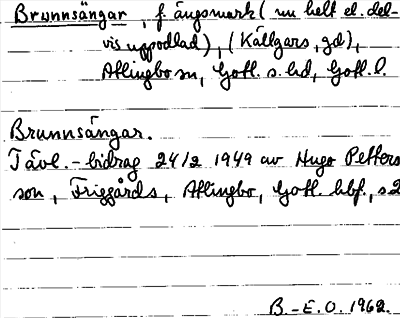 Brunnsängar, f. ängsmark (nu helt el. del-
vis uppodlad), (Källgårs, gd),
Atlingbo sn, Gotl. s. hd, Gotl. l.
Brunnsängar.
Tävl.-bidrag 24/2 1949 av Hugo Petters
son, Friggårds, Atlingbo, Gotl. hbf., s 2
B.-E. O. 1962.